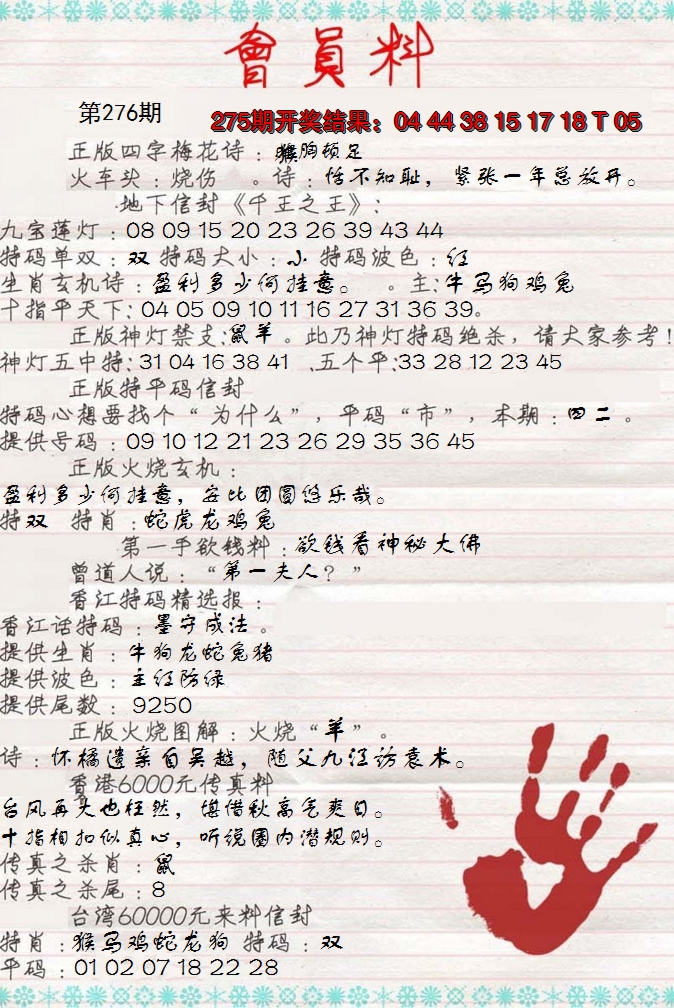 會員料
第276期
275期开奖结果：04 44 38 15 17 18 T 05
正版四字梅花诗：猴胸顿足
火车头：烧伤 。诗：恬不知耻，紧张一年总放开。
地下信封《千王之王》：
九宝莲灯：08 09 15 20 23 26 39 43 44
特码单双：双 特码大小：小 特码波色：红
生肖玄机诗：盈利多少何挂意。 。主：牛马狗鸡兔
十指平天下：04 05 09 10 11 16 27 31 36 39。
正版神灯禁支：鼠羊 。此乃神灯特码绝杀，请大家参考！
神灯五中特：31 04 16 38 41 .五个平：33 28 12 23 45
正版特平码信封
特码心想要找个“为什么”，平码“市”，本期：四二 。
提供号码：09 10 12 21 23 26 29 35 36 45
正版火烧玄机：
盈利多少何挂意，安比团圆悠乐哉。
特双 特肖：蛇虎龙鸡兔
第一手欲钱料：欲钱看神秘大佛
曾道人说：“第一夫人？”
香江特码精选报：
香江话特码：墨守成法 。
提供生肖：牛狗龙蛇兔猪
提供波色：主红防绿
提供尾数：9250
正版火烧图解：火烧“羊”。
诗：怀橘遗亲自吴越，随父九江访袁术。
香港6000元传真料
台风再大也枉然，堪借秋高气爽日。
十指相扣似真心，听说圈内潜规则。
传真之杀肖：鼠
传真之杀尾：8
台湾60000元来料信封
特肖：猴马鸡蛇龙狗 特码：双
平码：01 02 07 18 22 28